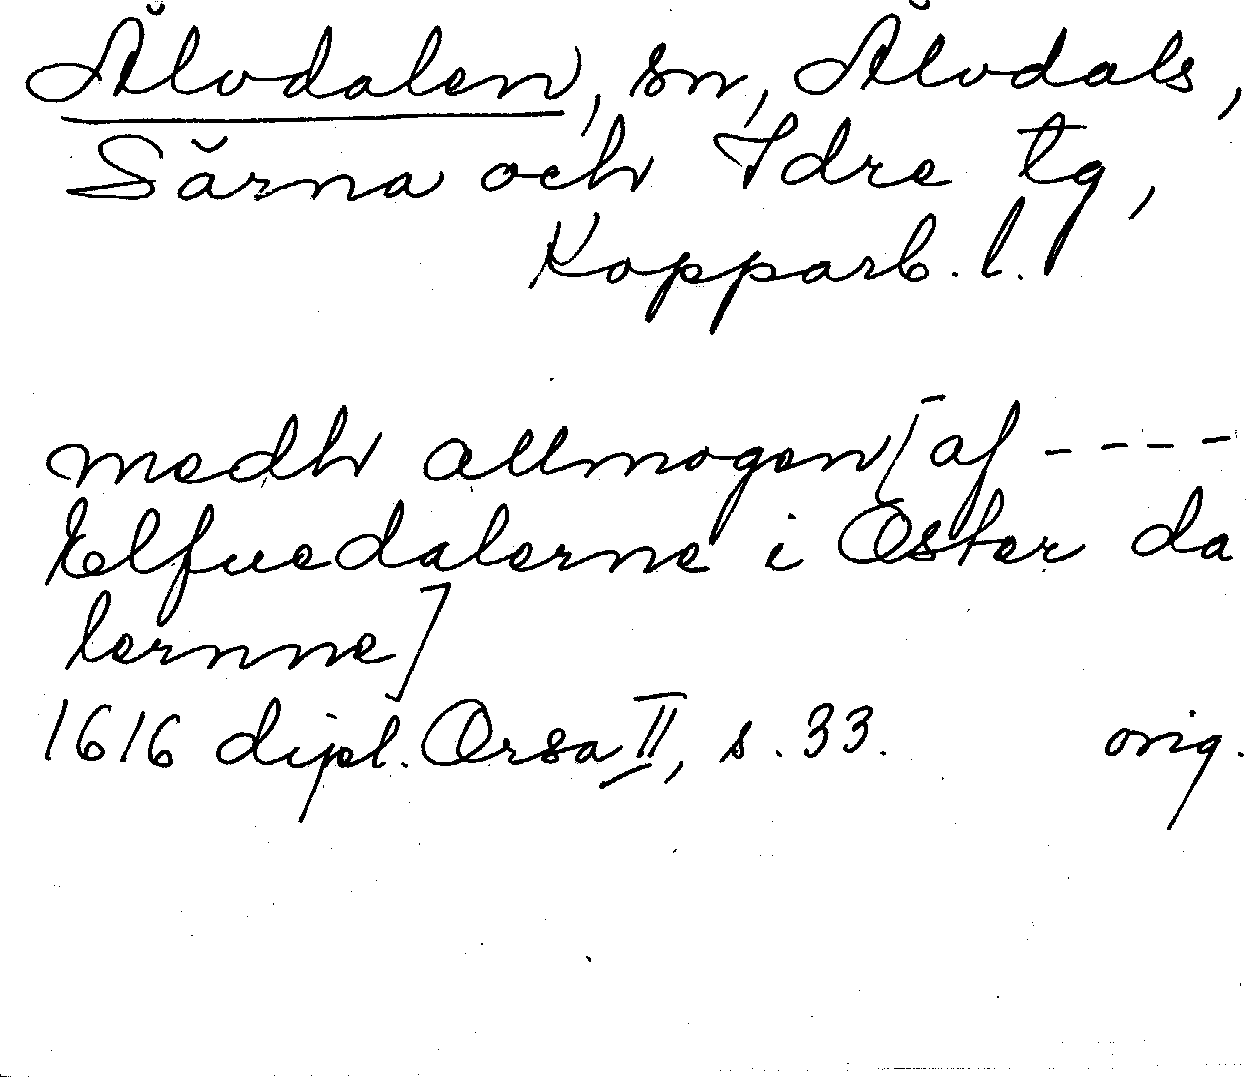 Älvdalen, sn, Älvdals,
Särna och Idre tg,
Kopparb. l.
medh allmogen [af ----
Elfuedalerne i Öster da
lernne]
1616 dipl. Orsa II, s. 33. orig.